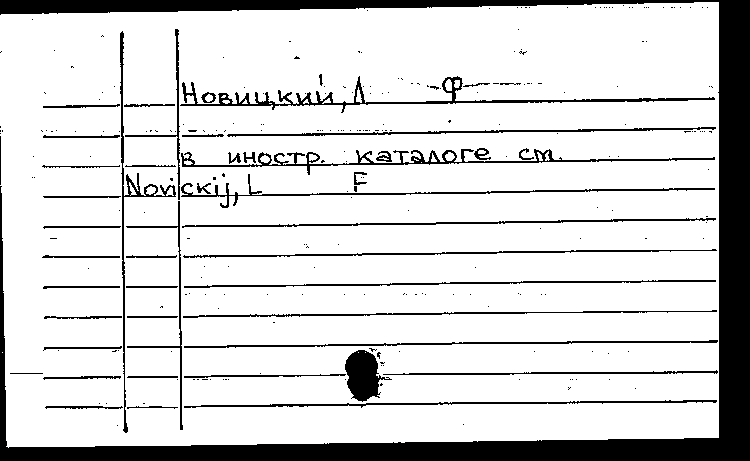 Новицкий, Л Ф
в иностр. каталоге см.
Novickij, L F